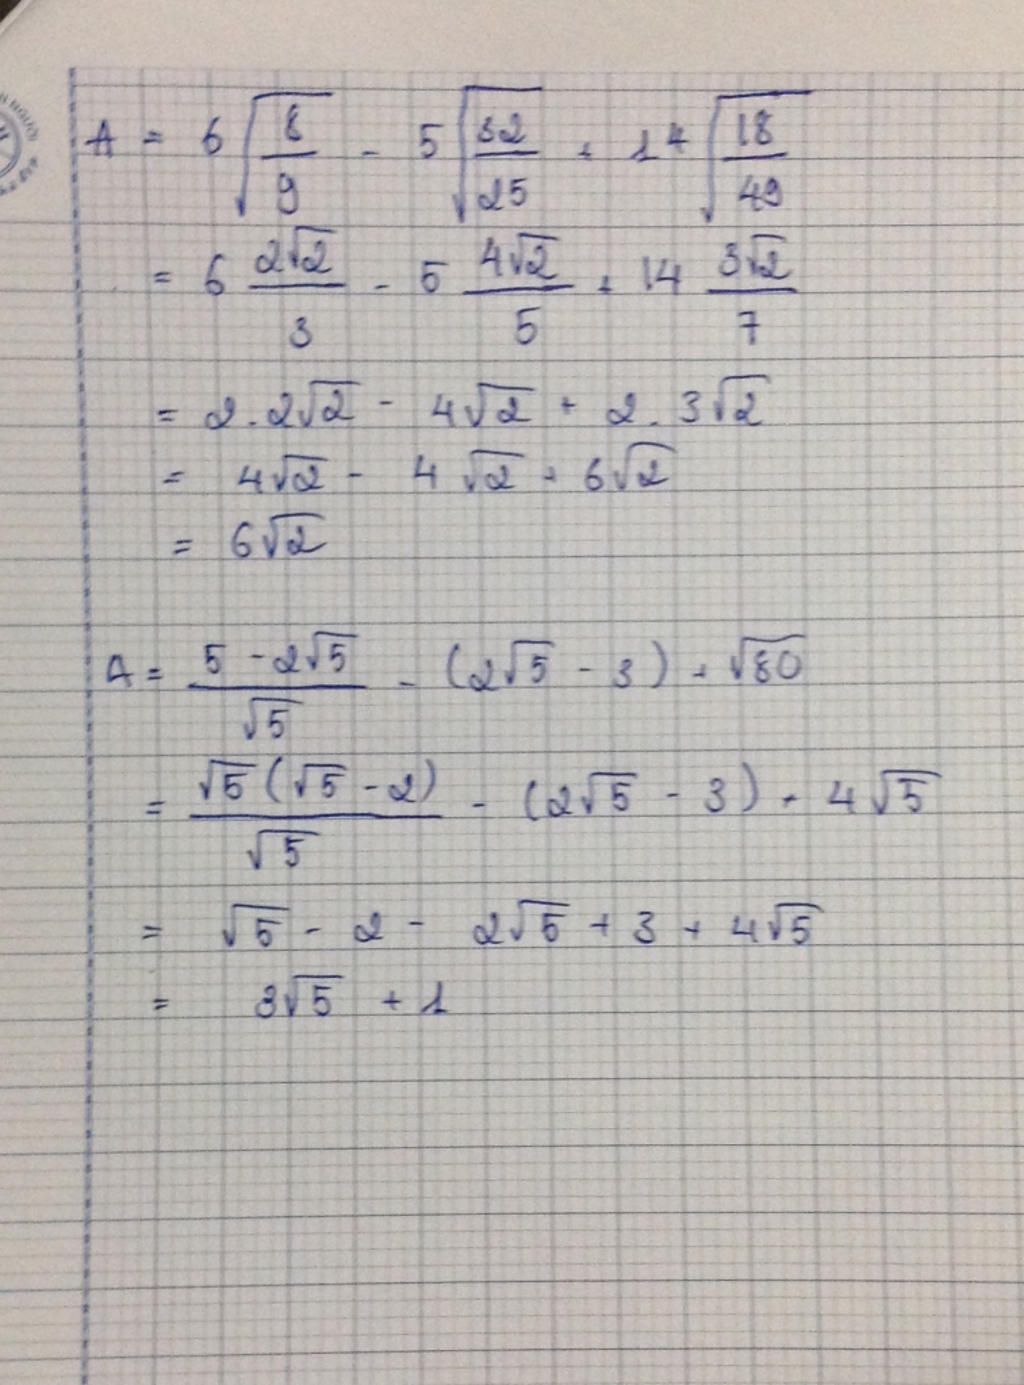 A = 6√(8/9) - 5√(32/25) + 14√(18/49)
= 6 (2√2)/3 - 5 (4√2)/5 + 14 (3√2)/7
= 2.2√2 - 4√2 + 2.3√2
= 4√2 - 4√2 + 6√2
= 6√2
A = (5 - 2√5)/√5 - (2√5 - 3) + √80
= (√5(√5 - 2))/√5 - (2√5 - 3) + 4√5
= √5 - 2 - 2√5 + 3 + 4√5
= 3√5 + 1